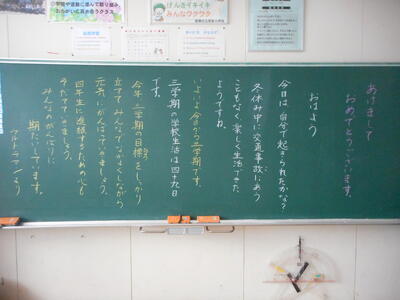 あけまして
おめでとうございます。
おはよう
今日は自分で起きられたかな?
冬休み中に交通事故にあう
こともなく、楽しく生活できた
ようですね。
いよいよ今日から三学期です。
三学期の学校生活は四十九日
です。
今年、三学期の目標をしっかり
立てて みんなでなかよくしながら
元気にがんばっていきましょう。
四年生に進級するための心も
そだてていきましょう。
みんなのがんばりに
期たいしています。